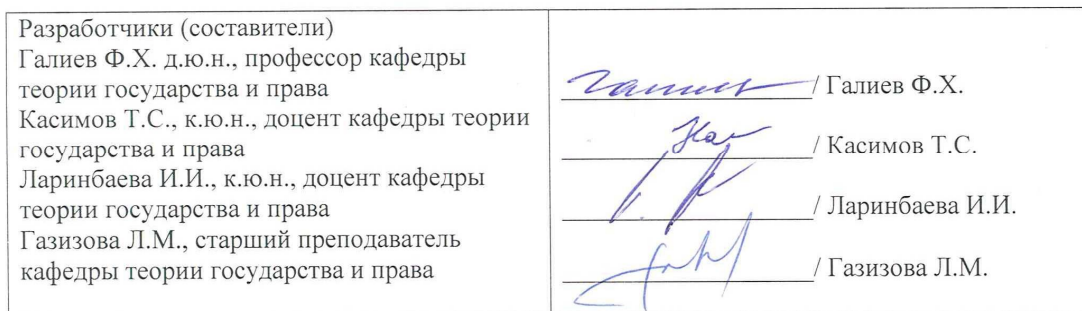 Разработчики (составители)
Галиев Ф.Х. д.ю.н., профессор кафедры
теории государства и права
Касимов Т.С., к.ю.н., доцент кафедры теории
государства и права
Ларинбаева И.И., к.ю.н., доцент кафедры
теории государства и права
Газизова Л.М., старший преподаватель
кафедры теории государства и права
/ Галиев Ф.Х.
/ Касимов Т.С.
/ Ларинбаева И.И.
/ Газизова Л.М.